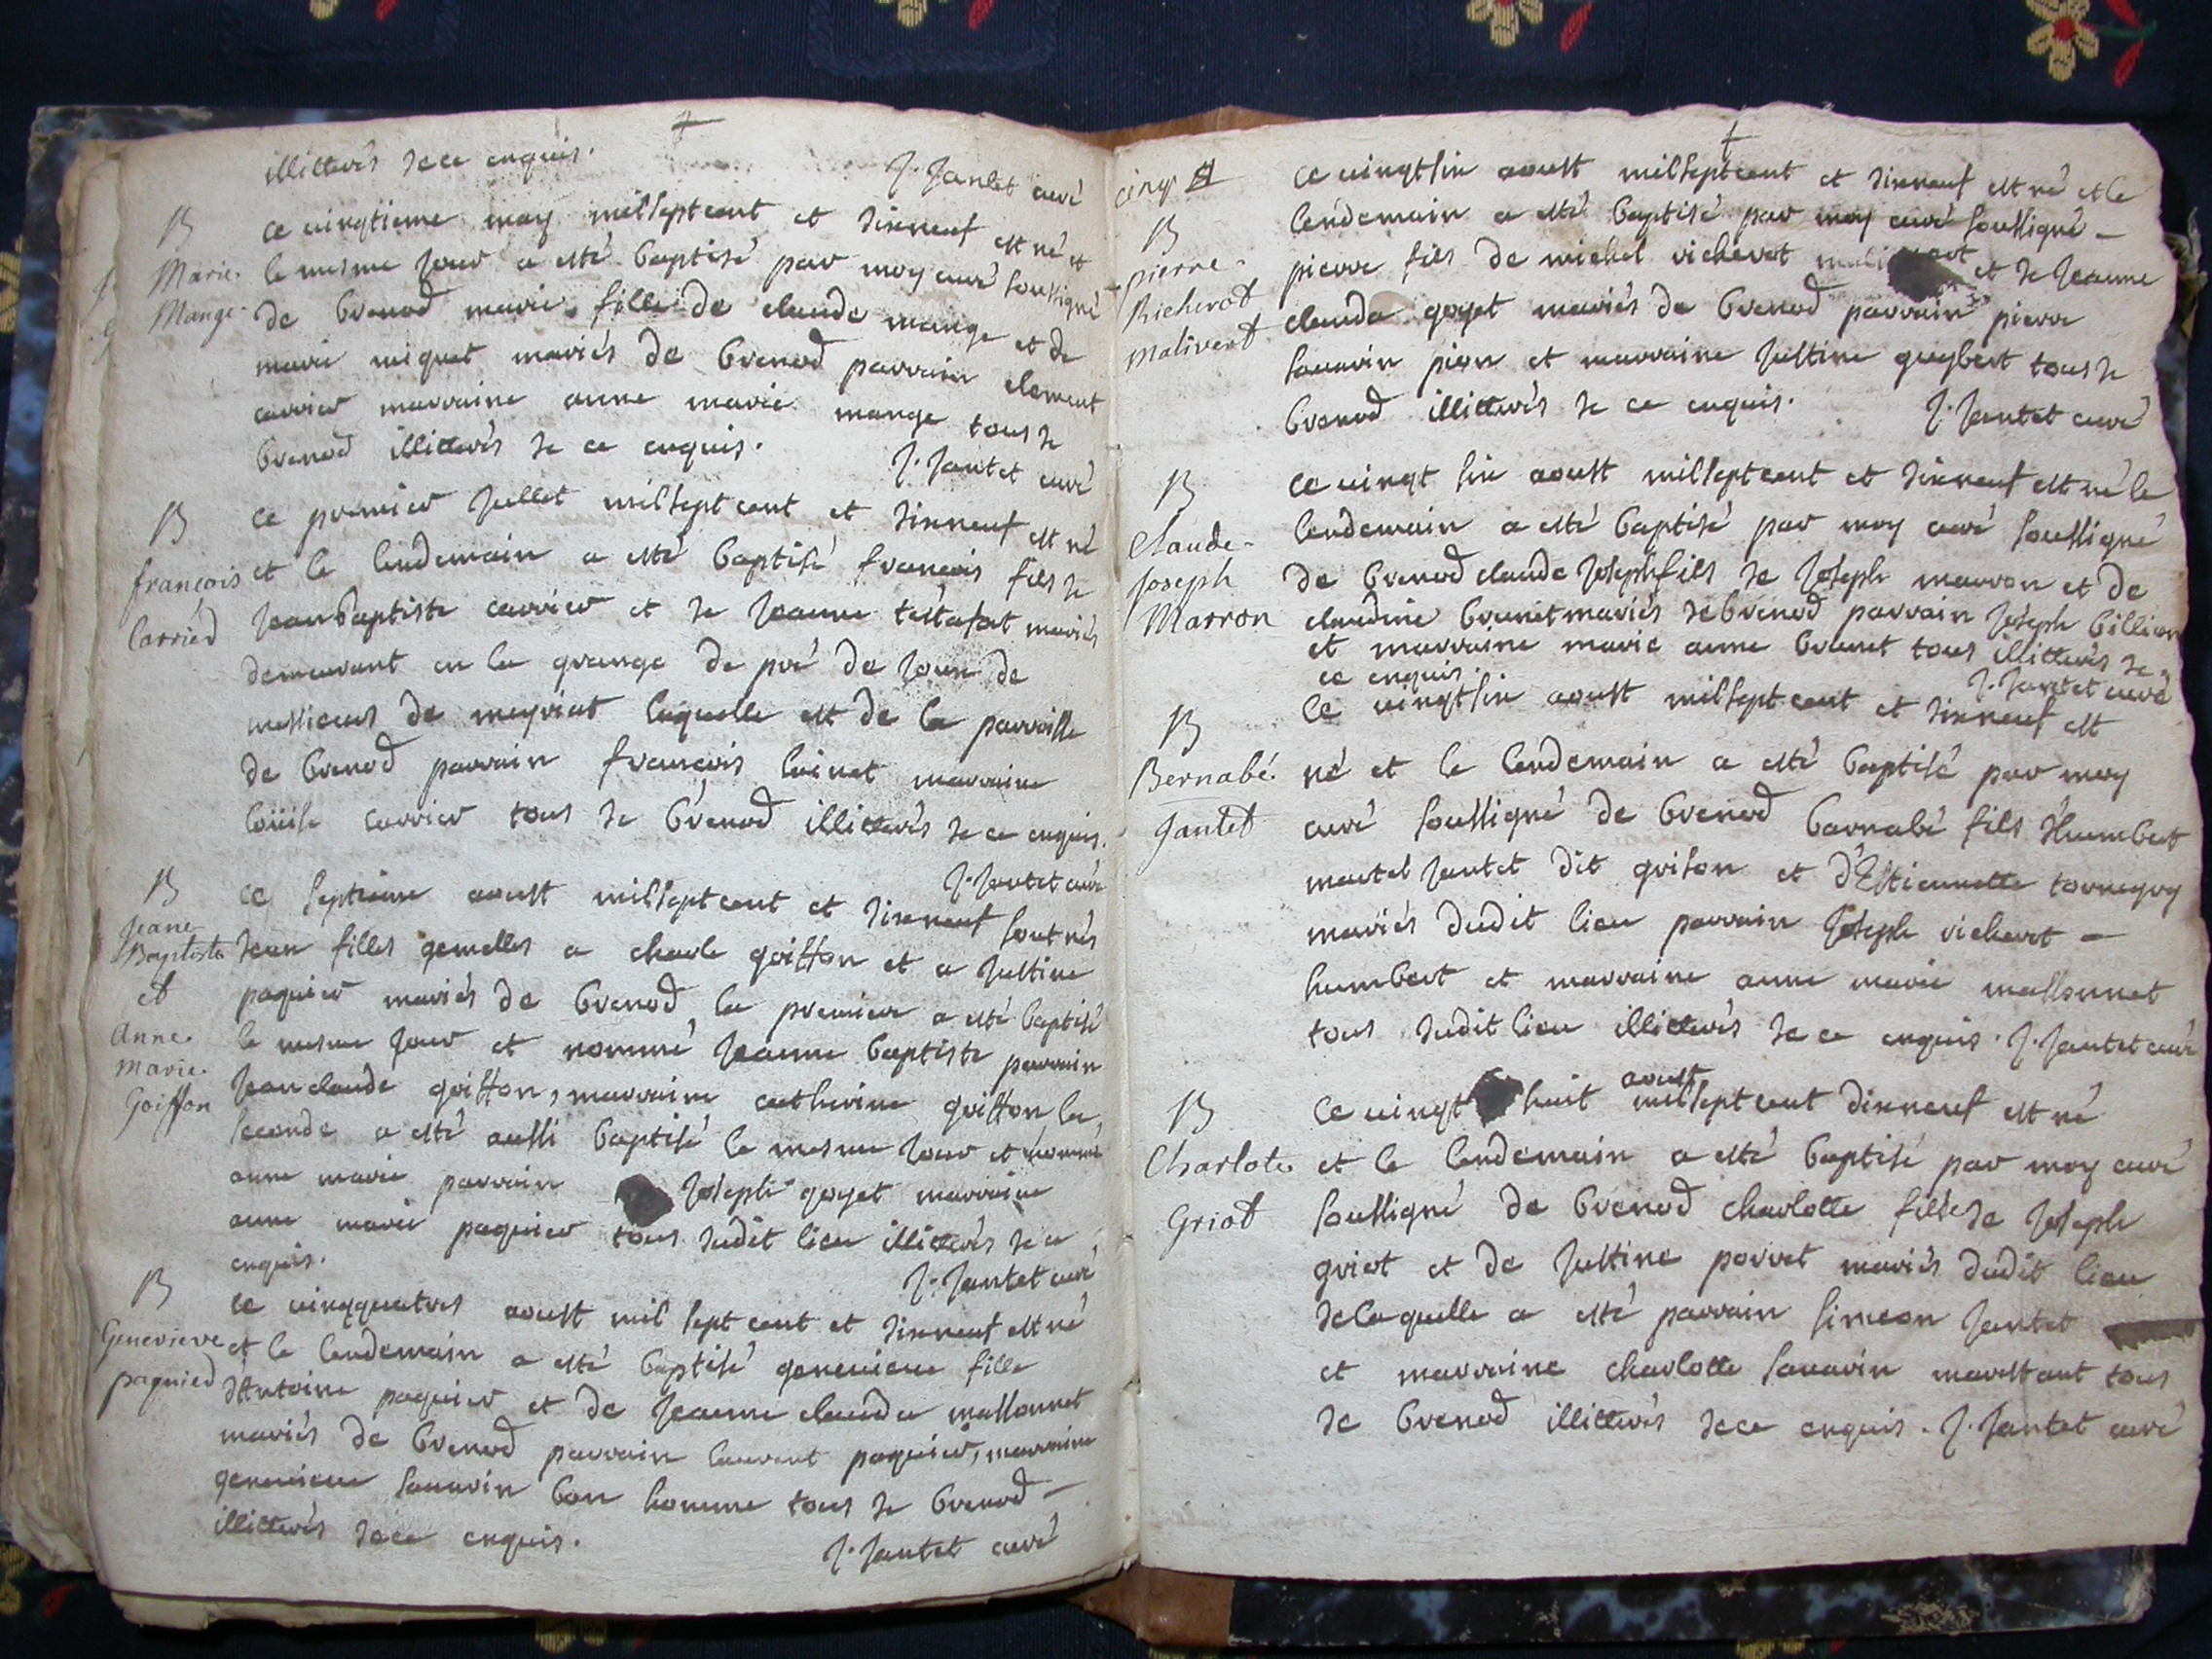 illitterés de ce enquis.
J. Jantet curé
B
Marie
Mange
ce vingtieme may mil sept cent et dixneuf est né et
le mesme jour a esté baptisé par moy curé soussigné
de brenod marie fille de claude mange et de
marie niquet mariés de brenod parrain clement
carrier marraine anne marie mange tous de
brenod illitterés de ce enquis.
J. Jantet curé
B
françois
Carried
ce premier Jullet mil sept cent et dixneuf est né
et le lendemain a esté baptisé francois fils de
Jean baptiste carrier et de Jeanne mariés
demeurant en la grange de pré de Joux de
messieurs de meyriat laquelle est de la parroisse
de brenod parrain francois marraine
loüise carrier tous de brenod illitterés de ce enquis.
J. Jantet curé
B
Jeane
Baptiste
et
Anne
Marie
Goiffon
ce septieme aoust mil sept cent et dixneuf sont nés
deux filles gemelles a charle goiffon et a Justine
paquier mariés de brenod la premiere a esté baptisé
le mesme jour et nommé Jeanne baptiste parrain
Jean claude goiffon, marraine catherine goiffon la
seconde a esté aussi baptisé le mesme jour et nommé
anne marie parrain Joseph goyet marraine
anne marie paquier tous dudit lieu illitterés de ce
enquis.
J. Jantet curé
B
Genevieve
paquied
ce vingquatres aoust mil sept cent et dixneuf est né
et le lendemain a esté baptisé genevieve fille
dAntoine paquier et de Jeanne clauda massonnet
mariés de brenod parrain laurent paquier, marraine
genevieve sauarin bon homme tous de brenod -
illitterés de ce enquis.
J. Jantet curé
cinq
B
pierre
Richerot
Malivert
ce vingtsix aoust mil sept cent et dixneuf est né et le
lendemain a esté baptisé par moy curé soussigné -
pierre fils de michel richerot et de Jeanne
clauda goyet mariés de brenod parrain pierre
sauarin pion et marraine Justine guybert tous de
brenod illitterés de ce enquis.
J. Jantet curé
B
Claude
Joseph
Marron
ce vingt six aoust mil sept cent et dixneuf est né le
lendemain a esté baptisé par moy curé soussigné
de brenod claude Joseph fils de Joseph marron et de
claudine brunet mariés de brenod parrain Joseph billion
et marraine marie anne brunet tous illitterés de
ce enquis.
J. Jantet curé
B
Bernabé
Jantet
le vingtsix aoust mil sept cent et dixneuf est
né et le lendemain a esté baptisé par moy
curé soussigné de brenod barnabé fils d'humbert
martel Jantet dit grison et d'Estiennette
mariés dudit lieu parrain Joseph richerot -
humbert et marraine anne marie massonnet
tous dudit lieu illitterés de ce enquis. J. Jantet curé
B
Charlote
Griot
aoust
ce vingt huit mil sept cent dixneuf est né
et le lendemain a esté baptisé par moy curé
soussigné de brenod charlotte fille de Joseph
griot et de Justine porret mariés dudit lieu
de laquelle a esté parrain simeon Jantet
et marraine charlotte sauarin marestant tous
de brenod illitterés de ce enquis. J. Jantet curé